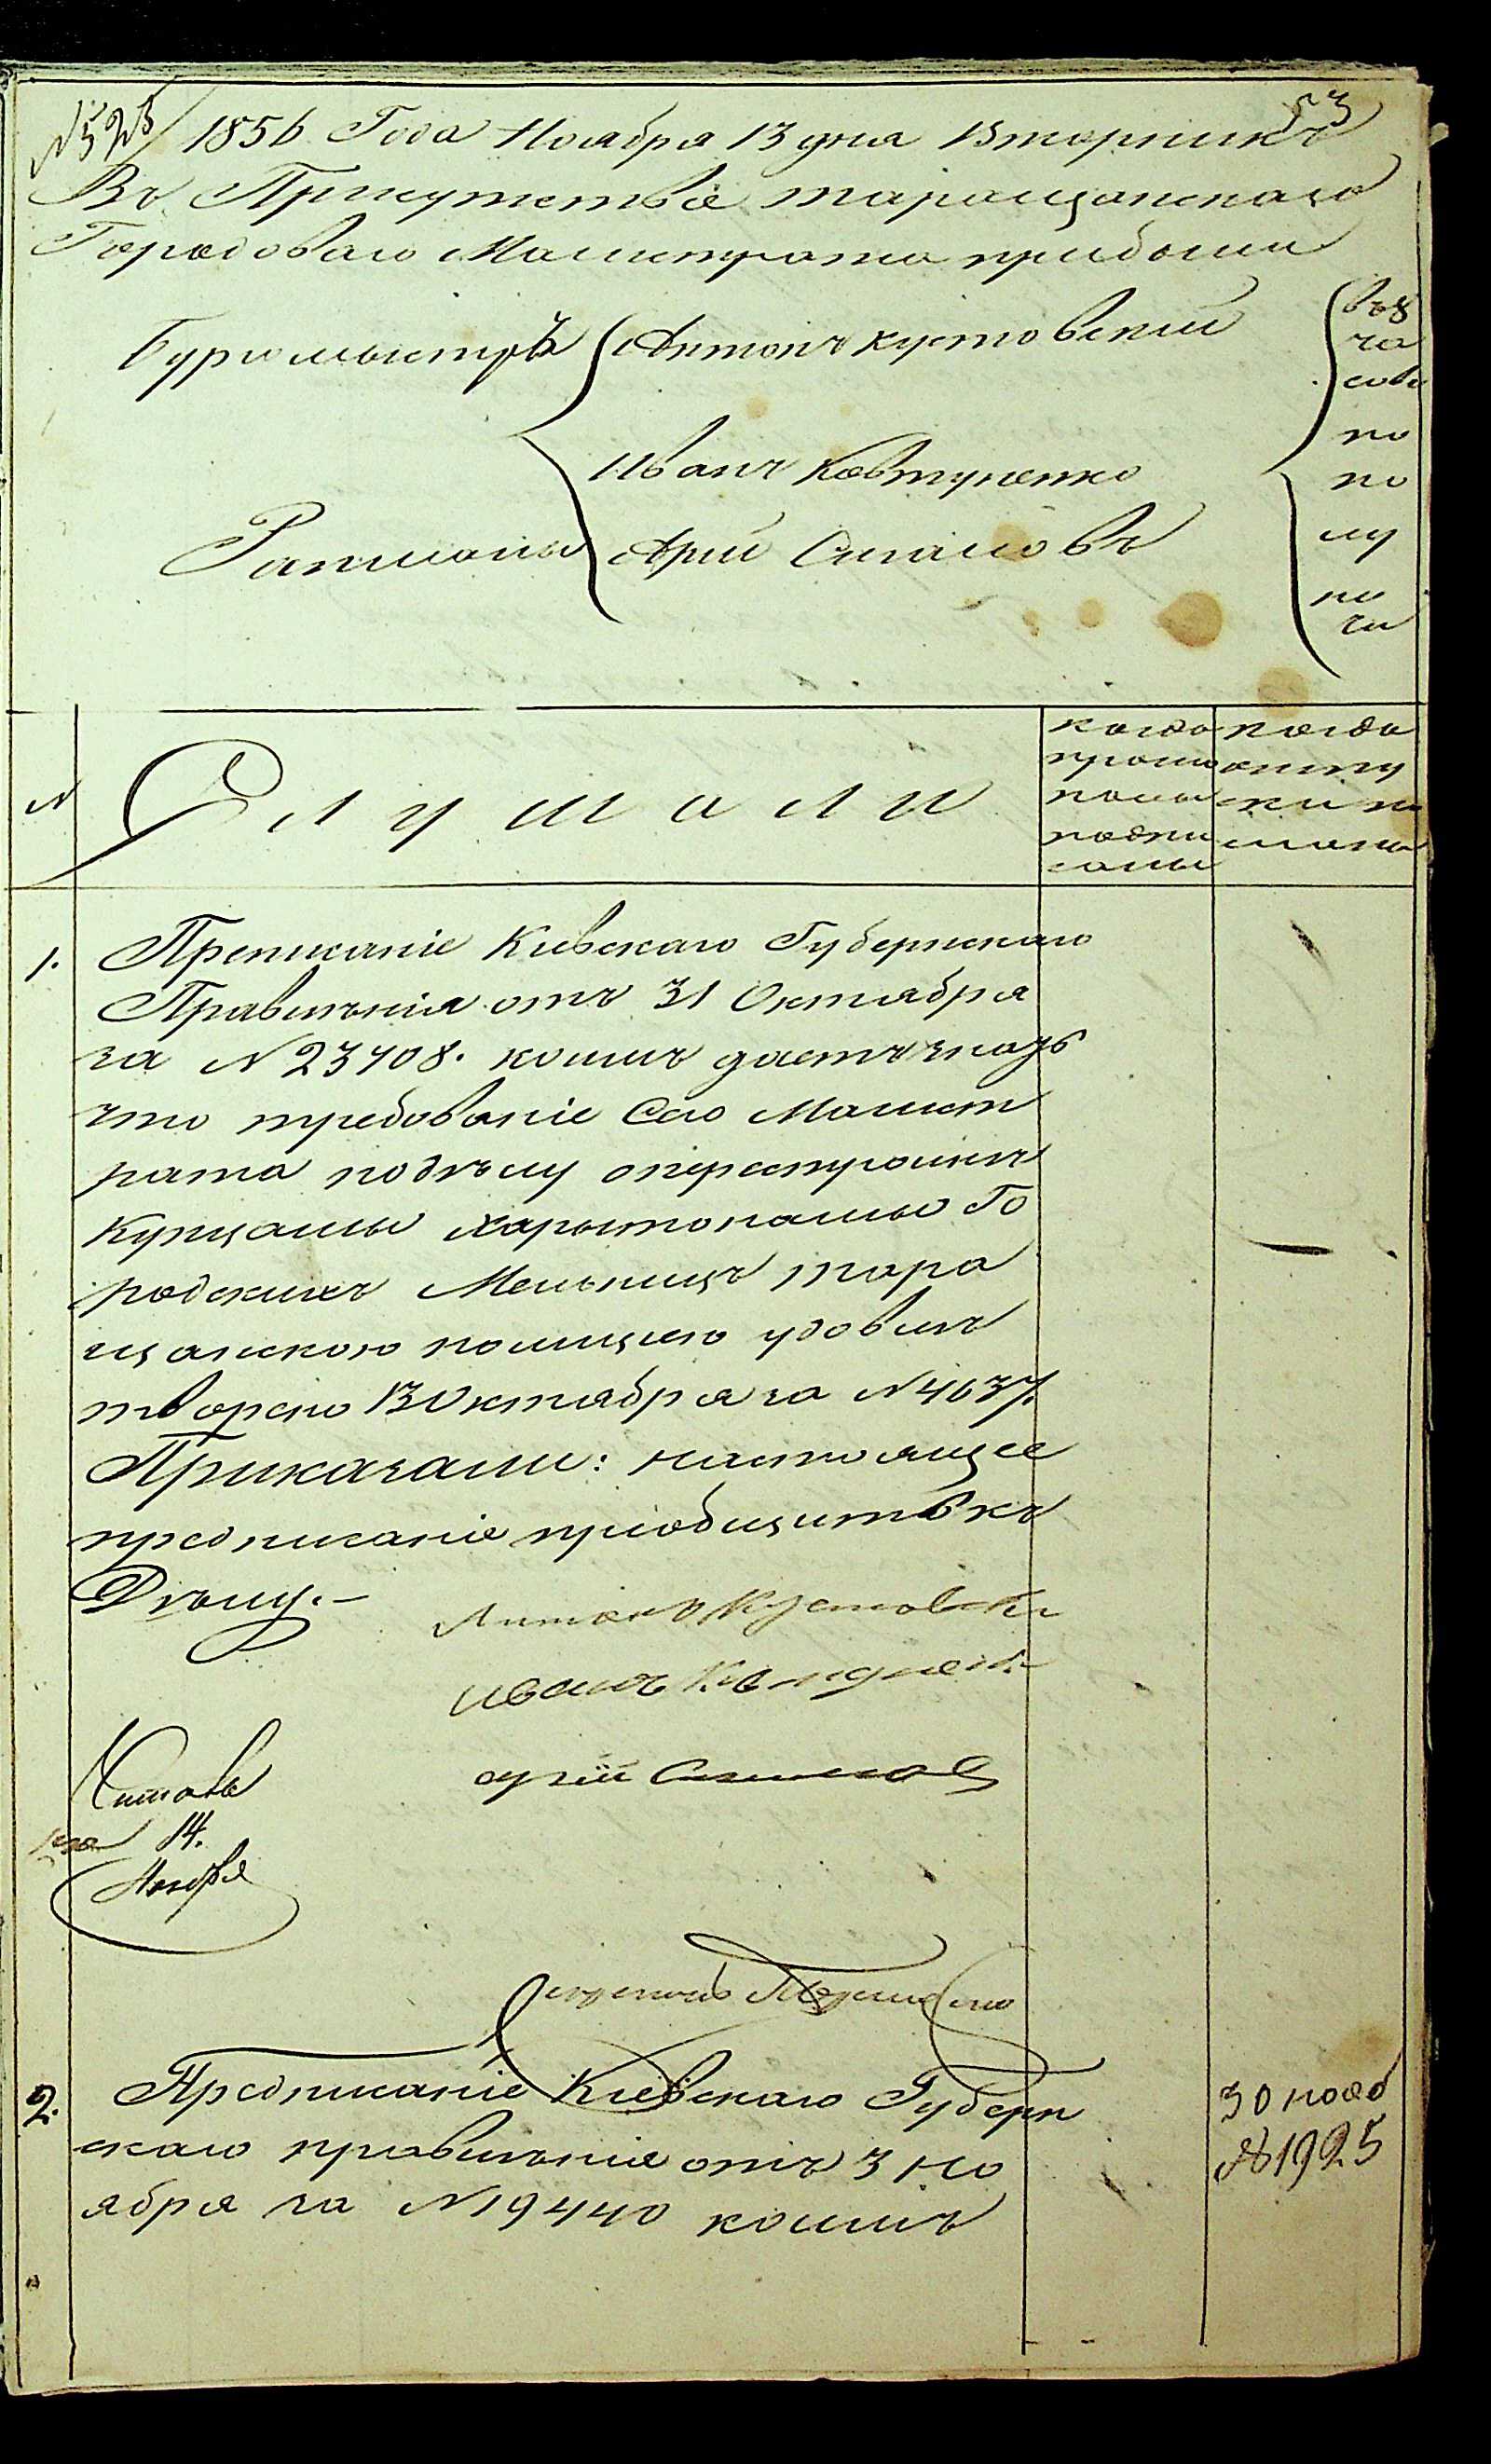 53
№525 1856 Года Ноября 13 дня Вторникъ
Въ Присутствіе таращанскаго
Городоваго Магистрата прибыли
Бургомыстръ Антонъ Кустовскій
въ 8
ча
сови
по
по
лу
но
чи
Иванъ Ковтуненко
Ратманы Арій Сигаловъ
№ Слушали
когда
прото
колы
подпи
саны
когда
отпу
ски по
сланы
1. Препысаніе Киевскаго Губернскаго
Правленія отъ 31 Октября
за №23408. коимъ даетъ знать
что требованіе Сего Магист
рата подѣлу оперестройкѣ
Купцамы Харытонамы Го
родскихъ Мельницъ тара
щанскою полициею удовле
творено 13 Октября за №4637.
Приказали: настоящее
предписаніе пріобщитькъ
Дѣлу.-
Антонъ Кустовски
иванъ Ковтуненко
арiй Сигалов
Читалъ
14.
Ноября
Секретарь
2. Предписаніе Киевскаго Губерн
скаго правленія отъ 3 Но
ября за №19440 коимъ
30 нояб
№1925